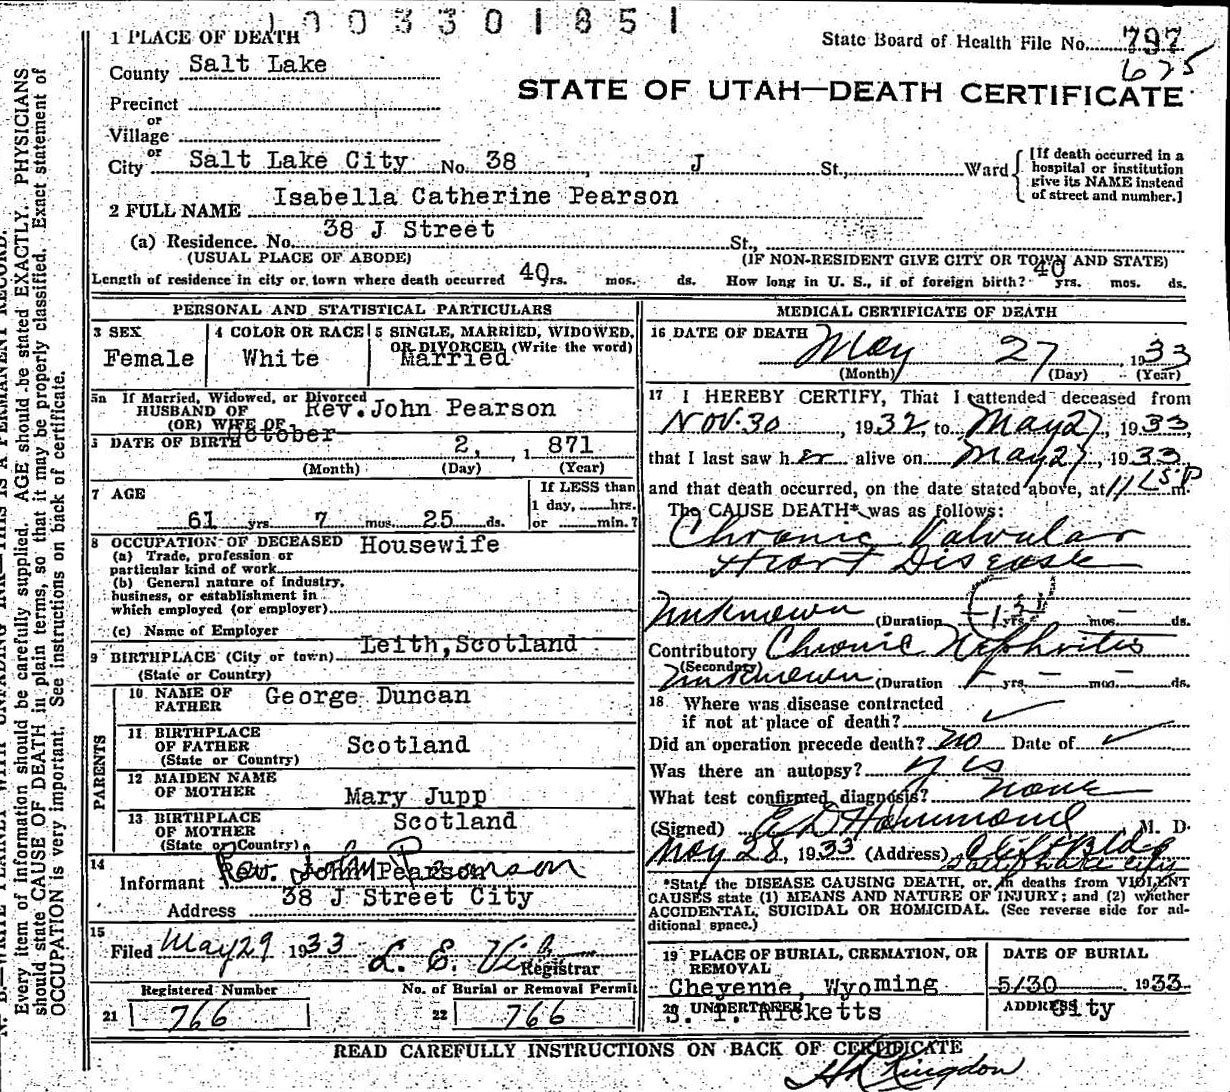 1003301851
1 PLACE OF DEATH
State Board of Health File No. 797
675
County Salt Lake
STATE OF UTAH—DEATH CERTIFICATE
Precinct
or
Village
or
City Salt Lake City No. 38 J St., Ward
[If death occurred in a hospital or institution give its NAME instead of street and number.]
2 FULL NAME Isabella Catherine Pearson
(a) Residence. No. 38 J Street St.,
(USUAL PLACE OF ABODE) (IF NON-RESIDENT GIVE CITY OR TOWN AND STATE)
Length of residence in city or town where death occurred 40 yrs. mos. ds. How long in U. S., if of foreign birth? 40 yrs. mos. ds.
PERSONAL AND STATISTICAL PARTICULARS
3 SEX Female
4 COLOR OR RACE White
5 SINGLE, MARRIED, WIDOWED, OR DIVORCED (Write the word) Married
5a If Married, Widowed, or Divorced
HUSBAND OF
(OR) WIFE OF Rev. John Pearson
DATE OF BIRTH October 2, 1871
(Month) (Day) (Year)
7 AGE
61 yrs 7 mos. 25 ds.
If LESS than
1 day, hrs.
or min.?
8 OCCUPATION OF DECEASED Housewife
(a) Trade, profession or
particular kind of work
(b) General nature of Industry,
business, or establishment in
which employed (or employer)
(c) Name of Employer
9 BIRTHPLACE (City or town) Leith, Scotland
(State or Country)
PARENTS
10 NAME OF FATHER George Duncan
11 BIRTHPLACE OF FATHER Scotland
(State or Country)
12 MAIDEN NAME OF MOTHER Mary Jupp
13 BIRTHPLACE OF MOTHER Scotland
(State or Country)
14
Informant Rev. John Pearson
Address 38 J Street City
15
Filed May 29 1933 L. E.
Registrar
Registered Number
21 766
No. of Burial or Removal Permit
22 766
MEDICAL CERTIFICATE OF DEATH
16 DATE OF DEATH
May 27 1933
(Month) (Day) (Year)
17 I HEREBY CERTIFY, That I attended deceased from
Nov. 30, 1932, to May 27, 1933,
that I last saw her alive on May 27, 1933
and that death occurred, on the date stated above, at m.
The CAUSE DEATH* was as follows:
Chronic Valvular
Heart Disease
Unknown (Duration yrs. mos. ds.
Contributory Chronic Nephritis
(Secondary)
Unknown (Duration yrs. mos. ds.
18 Where was disease contracted
if not at place of death?
Did an operation precede death? no Date of
Was there an autopsy? yes
What test confirmed diagnosis? none
(Signed) E D Hammond M. D.
May 28, 1933 (Address) Clift Bldg
Salt Lake City
*State the DISEASE CAUSING DEATH, or, in deaths from VIOLENT
CAUSES state (1) MEANS AND NATURE OF INJURY; and (2) whether
ACCIDENTAL, SUICIDAL OR HOMICIDAL. (See reverse side for ad-
ditional space.)
19 PLACE OF BURIAL, CREMATION, OR REMOVAL
Cheyenne, Wyoming
DATE OF BURIAL
5/30 1933
20 UNDERTAKER
S. T. Ricketts
ADDRESS City
READ CAREFULLY INSTRUCTIONS ON BACK OF CERTIFICATE
Kingdon
N. B.—WRITE PLAINLY WITH UNFADING INK—THIS IS A PERMANENT RECORD.
Every item of information should be carefully supplied. AGE should be stated EXACTLY. PHYSICIANS
should state CAUSE OF DEATH in plain terms, so that it may be properly classified. Exact statement of
OCCUPATION is very important. See instructions on back of certificate.